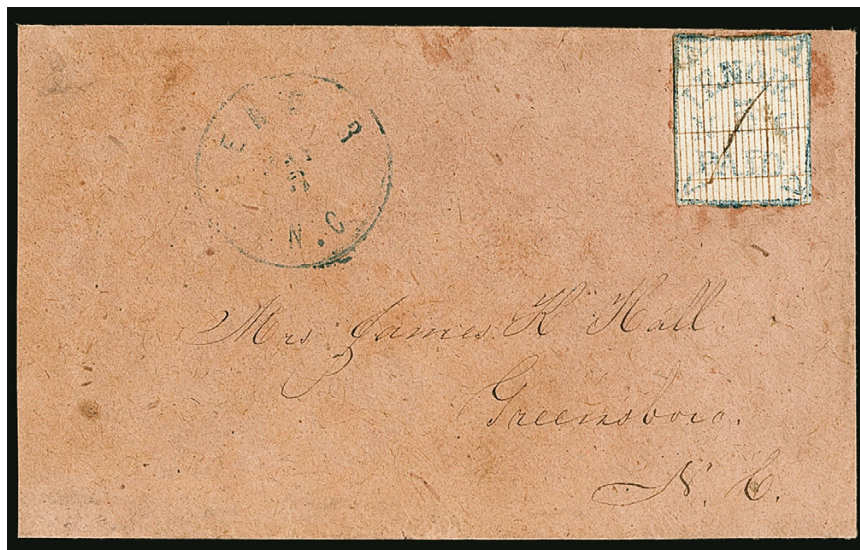 N.C
PAID
Mrs James K Hall.
Greensboro.
N. C.